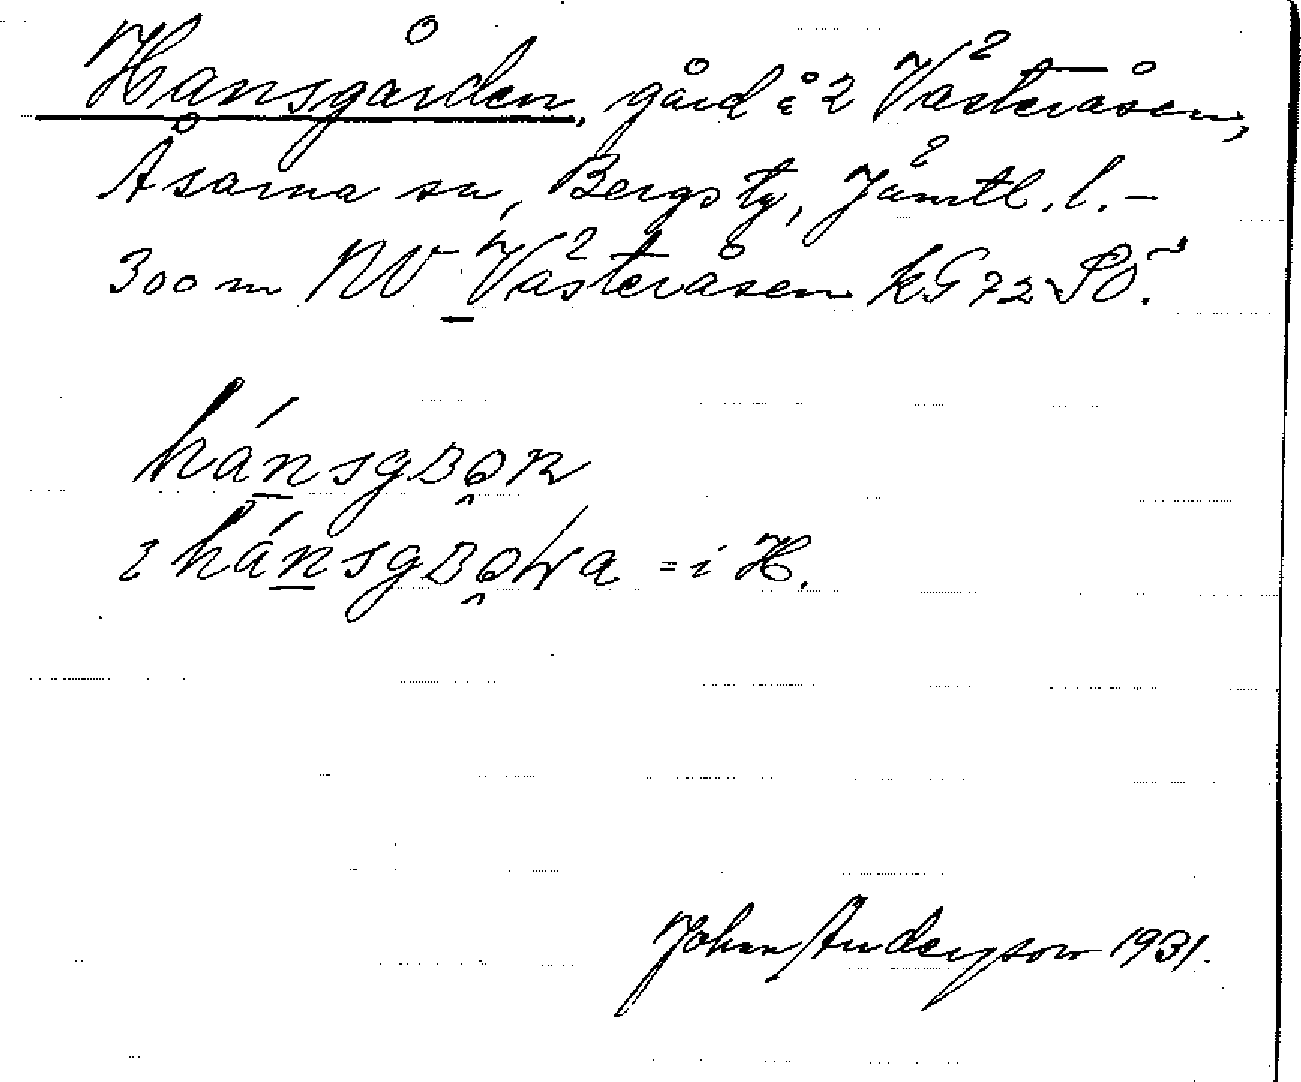 Hansgården, gård å 2 Västeråsen,
Åsarna sn, Bergs tg, Jämtl. l. -
300 m NV Västeråsen kG 72 SÖ.
= i H.
John Anderson 1931.